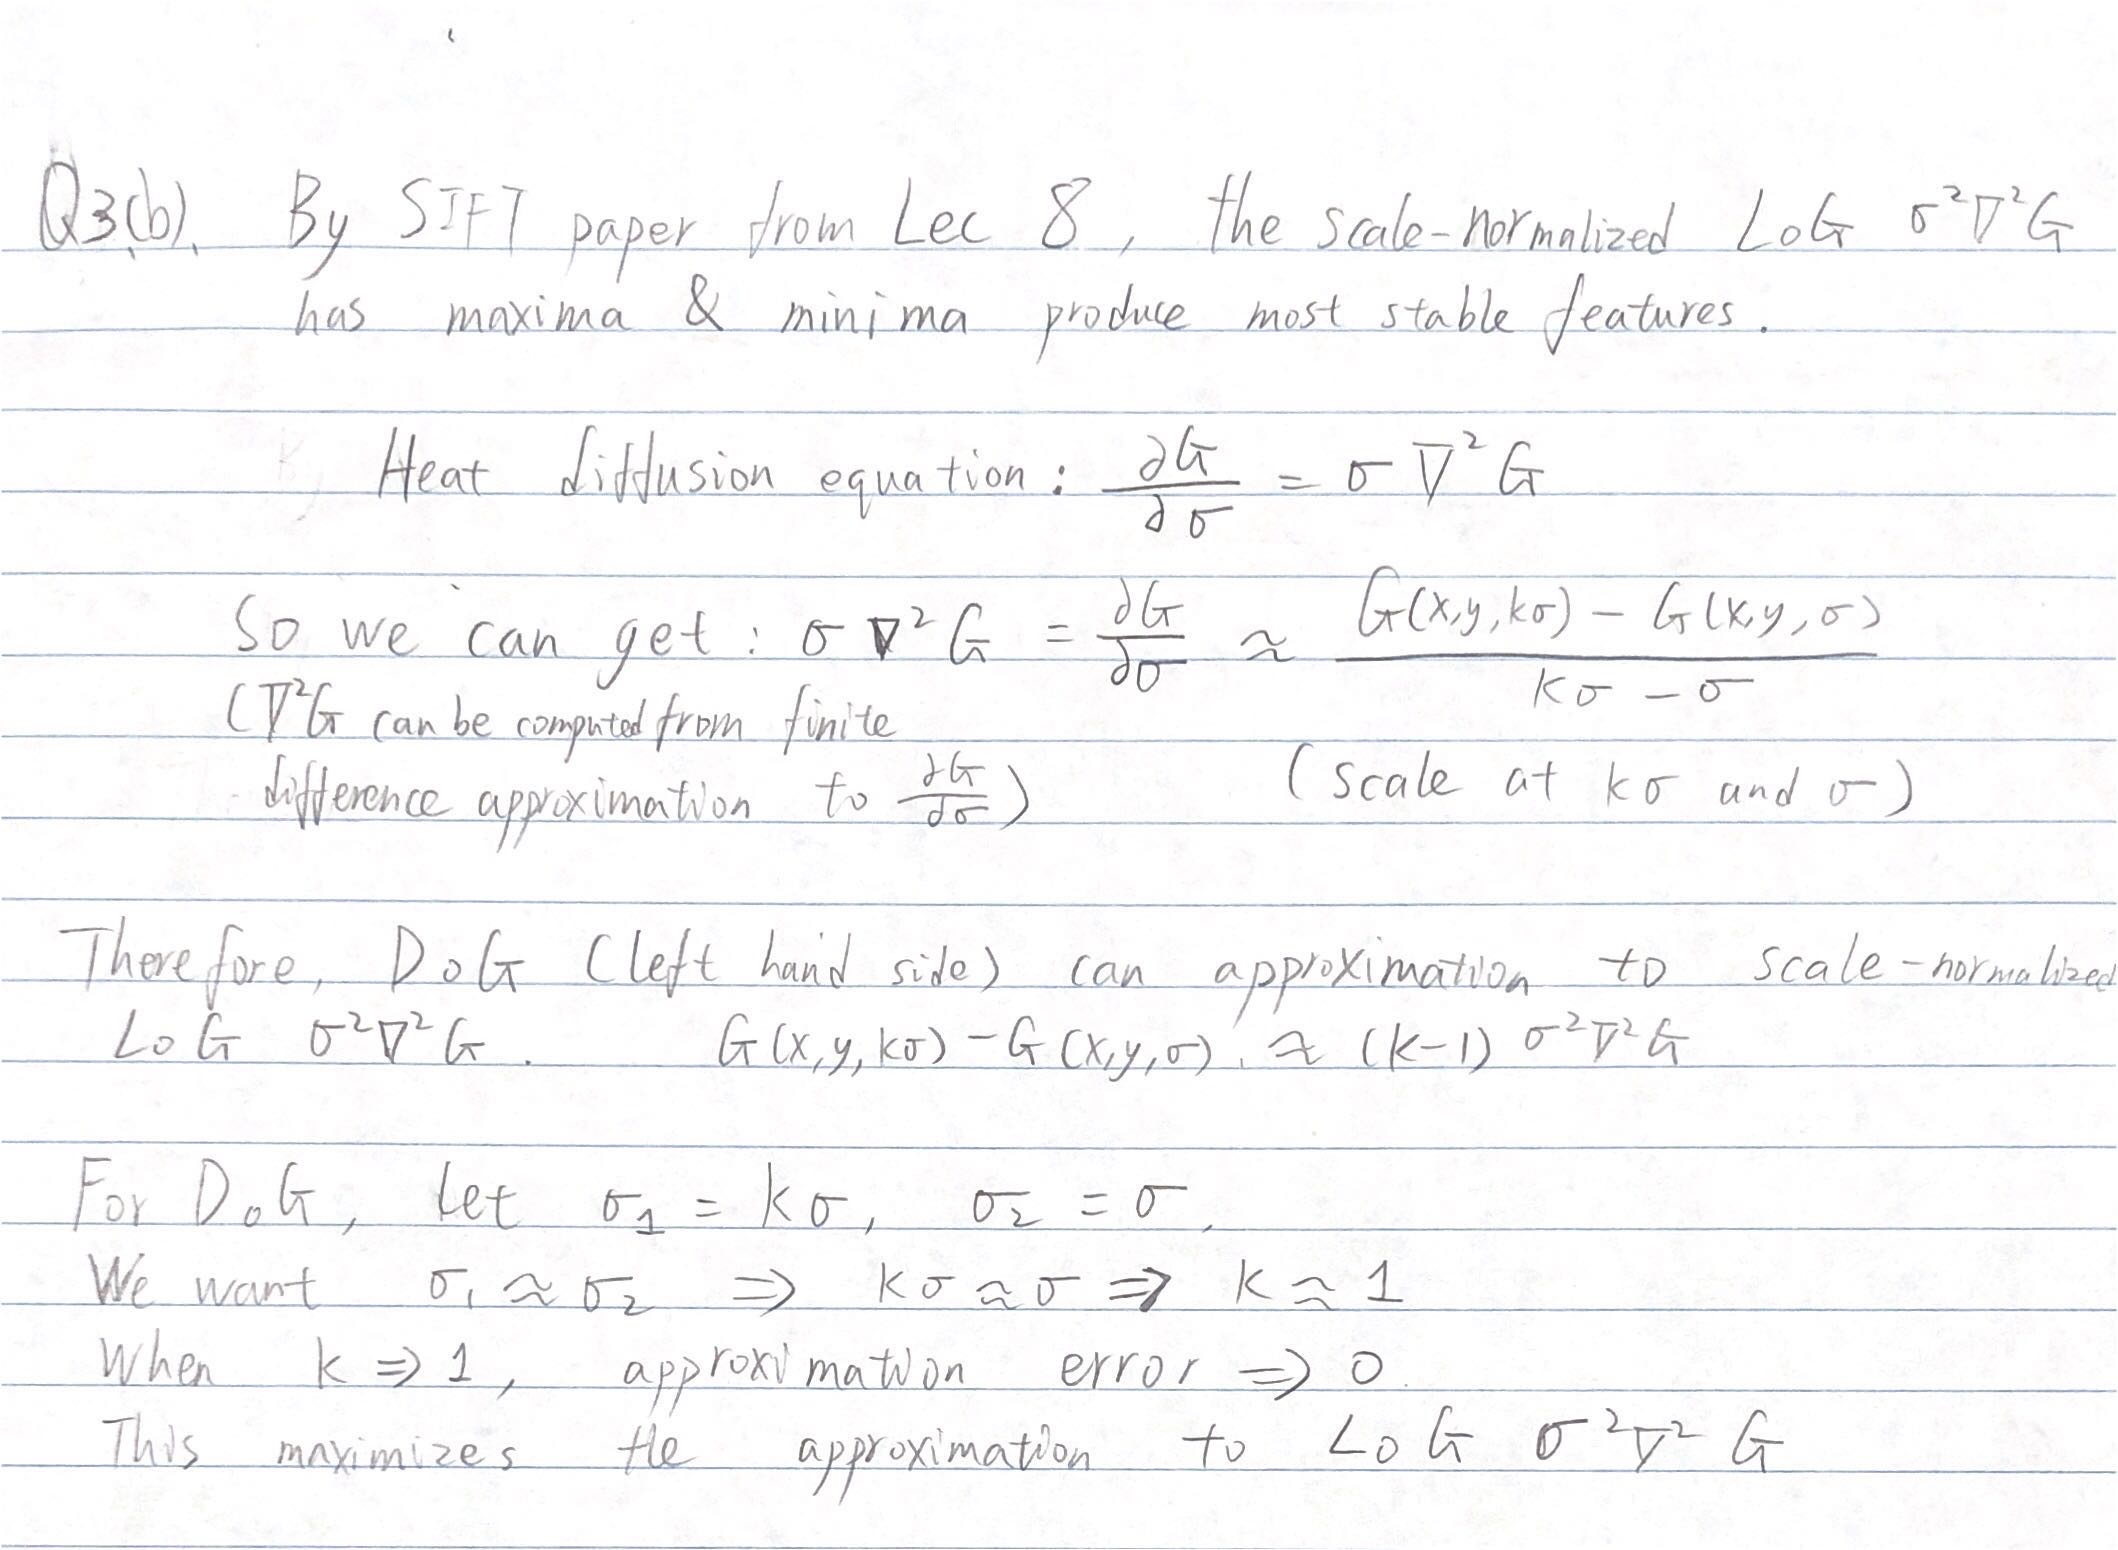 Q3(b). By SIFT paper from Lec 8, the scale-normalized LoG σ²∇²G
has maxima & minima produce most stable features.
Heat diffusion equation: ∂G/∂σ = σ∇²G
So we can get: σ∇²G = ∂G/∂σ ≈ (G(x,y,kσ) − G(x,y,σ))/(kσ − σ)
(∇²G can be computed from finite
difference approximation to ∂G/∂σ) (scale at kσ and σ)
Therefore, DoG (left hand side) can approximation to scale-normalized
LoG σ²∇²G. G(x,y,kσ) − G(x,y,σ). ≈ (k−1) σ²∇²G
For DoG, Let σ₁ = kσ, σ₂ = σ,
We want σ₁ ≈ σ₂ ⇒ kσ ≈ σ ⇒ k ≈ 1
When k ⇒ 1, approximation error ⇒ 0.
This maximizes the approximation to LoG σ²∇²G